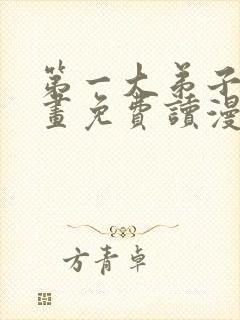 第一大弟子漫
畫免費讀漫
方青卓